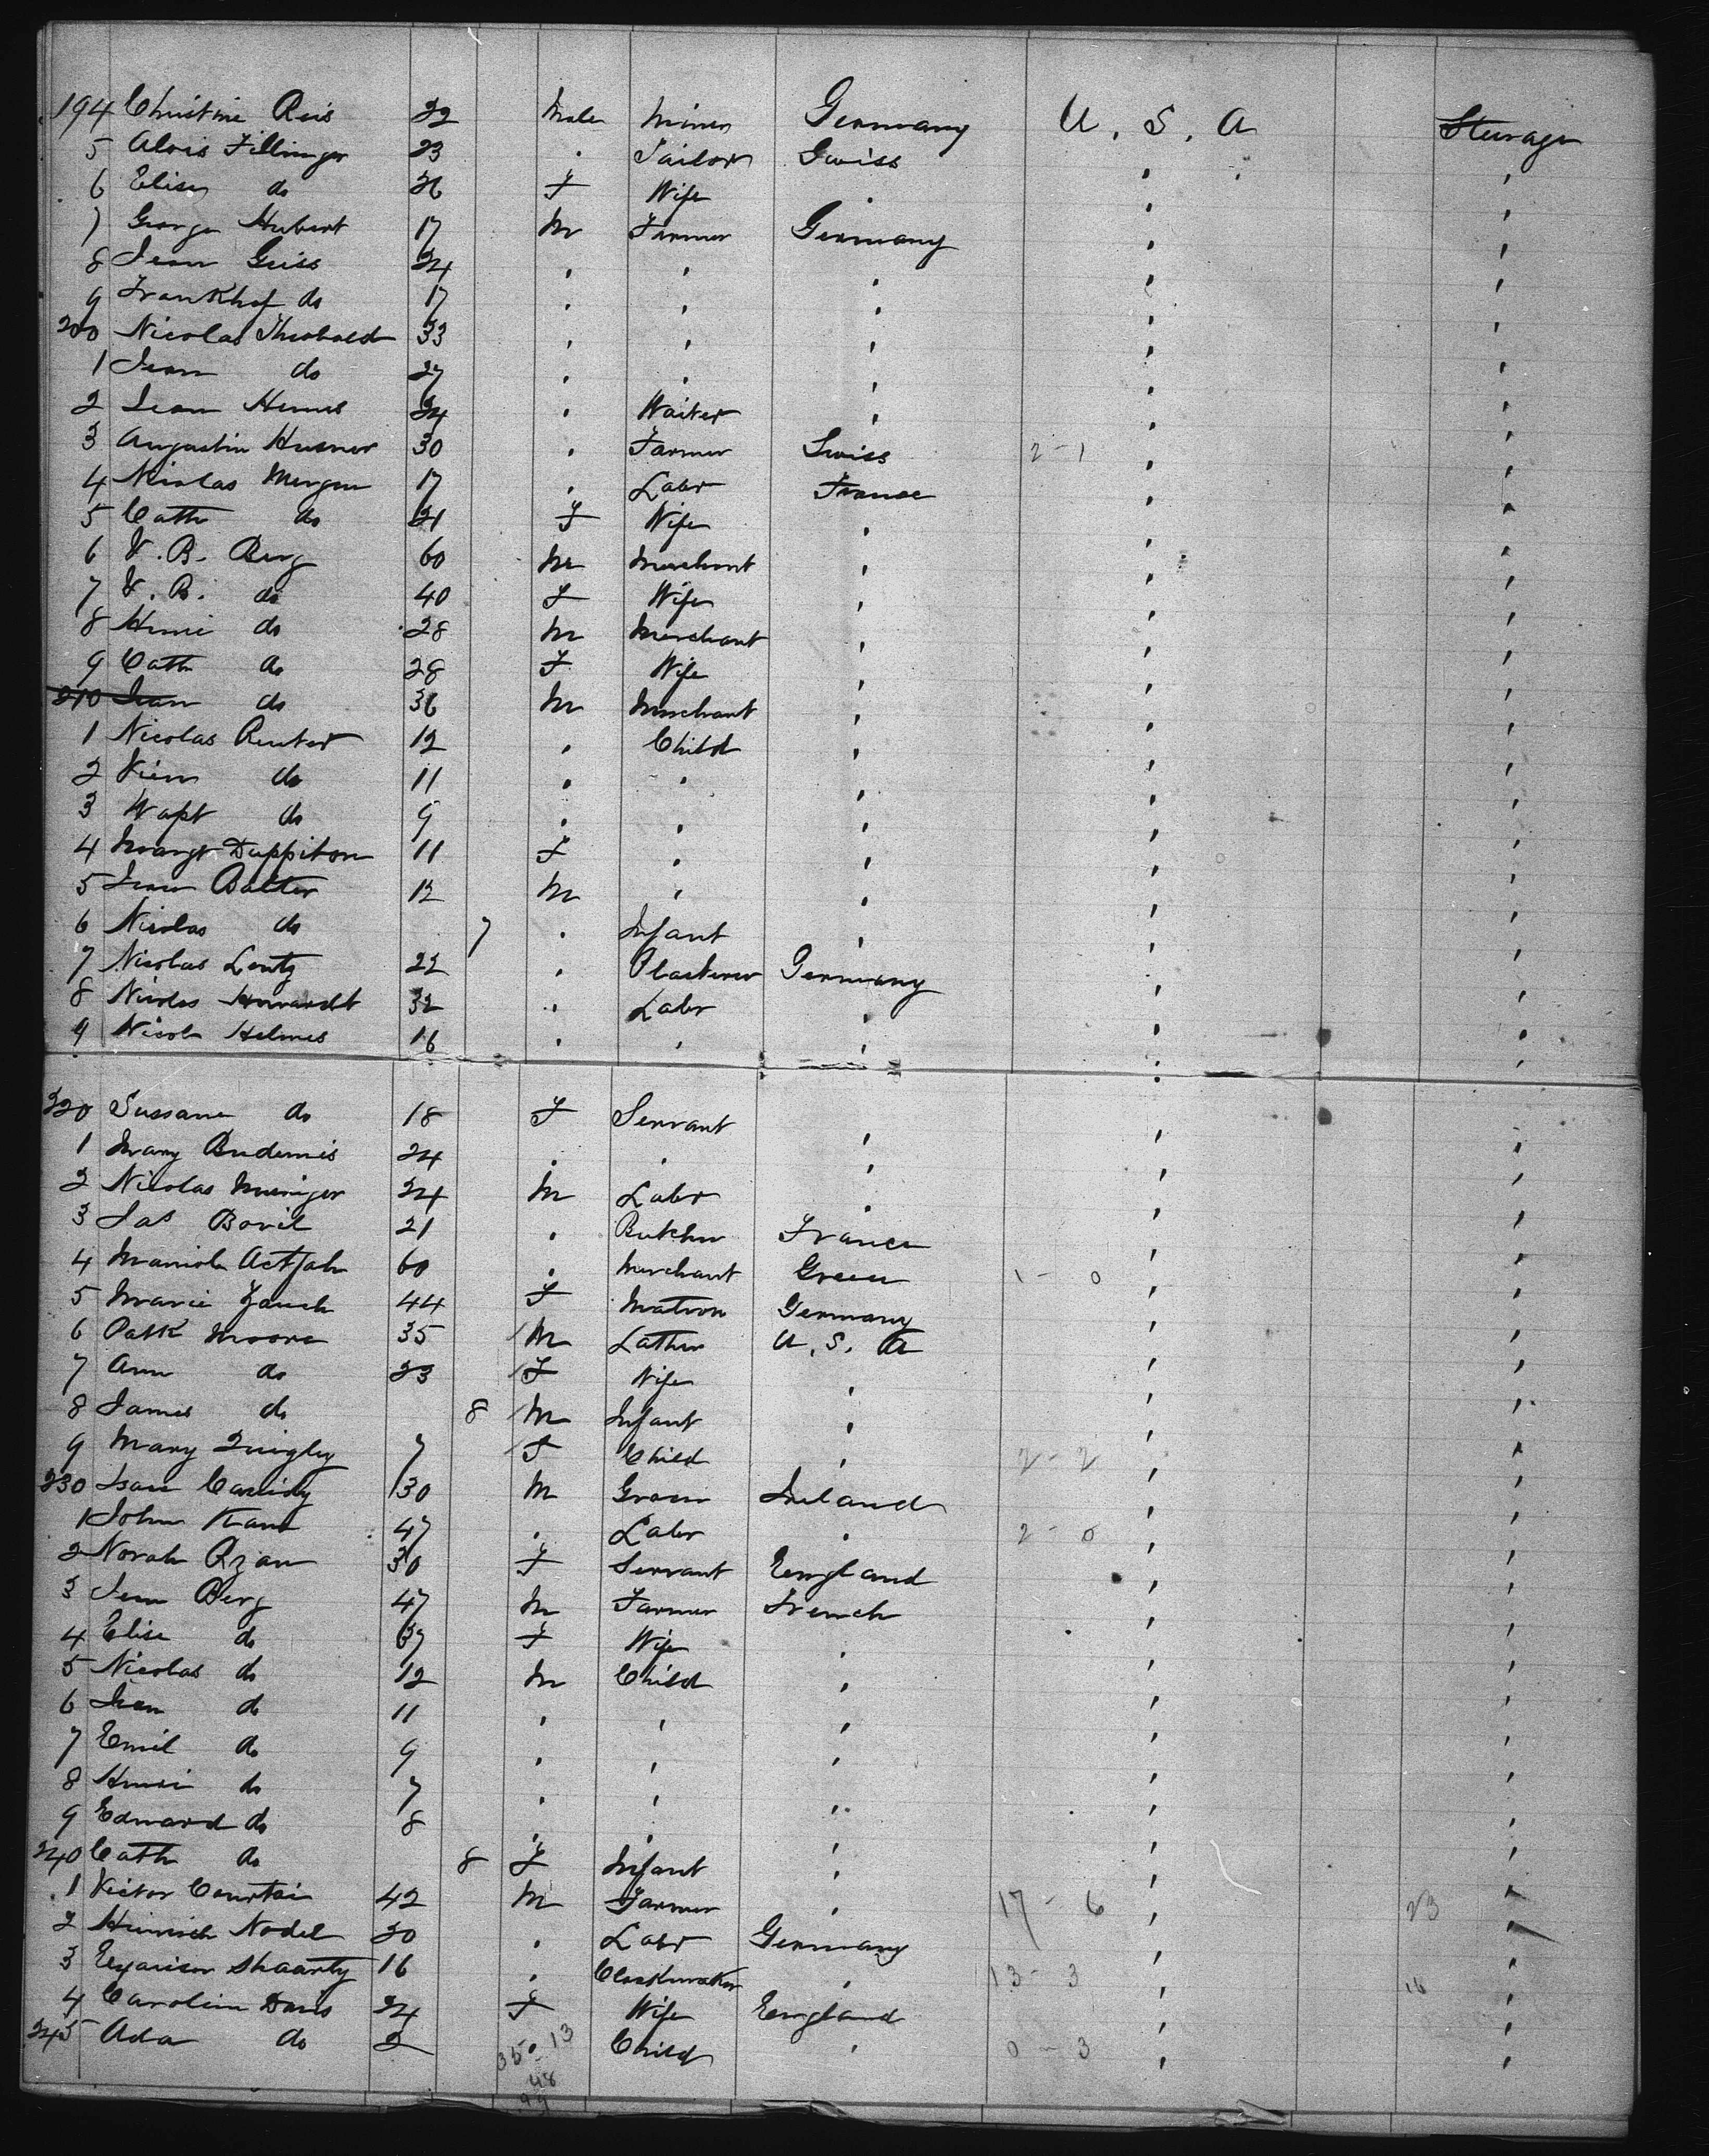 194 Christine Reis 22 Male Miner Germany U. S. A Steerage
5 Alois Fillinger 23 " Tailor Swiss " " "
6 Elise do 26 F Wife " " "
7 George Hubert 17 M Farmer Germany " "
8 Jean Geiss 24 " " " " "
9 do 17 " " " " "
200 Nicolas Theobald 33 " " " " "
1 Jean do 27 " " " " "
2 Jean 24 " Waiter " " "
3 Augustin 30 " Farmer Swiss 2-1 " "
4 Nicolas Mergen 17 " Labr France " "
5 Cath do 21 F Wife " " "
6 V. B. Berg 60 M Merchant " " "
7 V. B. do 40 F Wife " " "
8 Henri do 28 M Merchant " " "
9 Cath do 28 F Wife " " "
210 Jean do 36 M Merchant " " "
1 Nicolas Reuter 12 " Child " " "
2 do 11 " " " " "
3 do 9 " " " " "
4 11 F " " " "
5 Jean Balter 12 M " " " "
6 Nicolas do 7 " Infant " " "
7 Nicolas Lentz 22 " Plasterer Germany " "
8 Nicolas 32 " Labr " " "
9 Nicola Helmes 16 " " " " "
220 Sussane do 18 F Servant " " "
1 Mary 24 " " " " "
2 Nicolas 24 M Labr " " "
3 Jas Bovil 21 " Butcher France " "
4 60 " Merchant 1-0 " "
5 Marie 44 F Matron Germany " "
6 Patk Moore 35 M Lather U. S. A " "
7 Ann do 23 F Wife " " "
8 James do 8 M Infant " " "
9 Mary Quigley 7 F Child " 2-2 " "
230 30 M Grocer Ireland " "
1 John Kane 47 " Labr " 2-0 " "
2 Norah Ryan 30 F Servant England " "
3 Jean Berg 47 M Farmer French " "
4 Elise do 37 F Wife " " "
5 Nicolas do 12 M Child " " "
6 Jean do 11 " " " " "
7 Emil do 9 " " " " "
8 Henri do 7 " " " " "
9 Edward do 8 " " " " "
240 Cath do 8 F Infant " " "
1 Victor Courtois 42 M Farmer " 17-6 " 23 "
2 Heinrich Nodel 30 " Labr Germany " "
3 16 " " 13-3 " 16 "
4 Caroline Davis 24 F Wife England " "
245 Ada do 2 Child " 0-3 " "
35 13
48